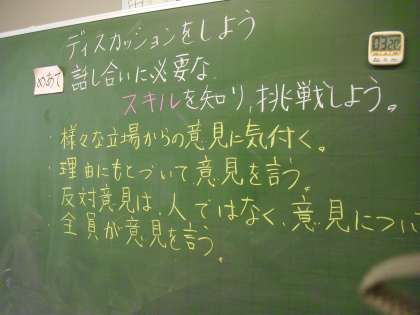 ディスカッションをしよう
めあて
話し合いに必要な
スキルを知り、挑戦しよう。
・様々な立場からの意見に気付く。
・理由にもとづいて意見を言う。
・反対意見は、人ではなく、意見につい
・全員が意見を言う。